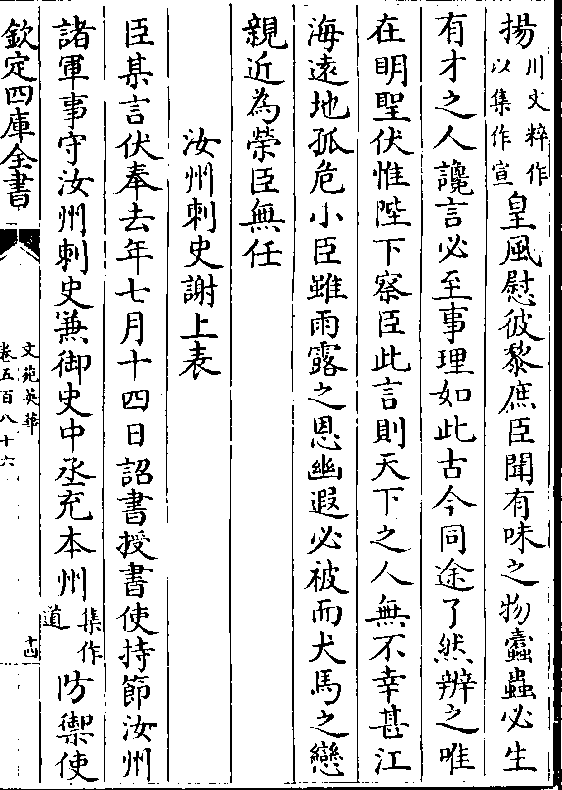 揚川文粹作以集作宣皇風慰彼黎庶臣聞有味之物蠹蟲必生
有才之人讒言必至事理如此古今同途了然辨之唯
在明聖伏惟陛下察臣此言則天下之人無不幸甚江
海遠地孤危小臣雖雨露之恩幽遐必被而犬馬之戀
親近為榮臣無任
汝州刺史謝上表
臣某言伏奉去年七月十四日詔書授書使持節汝州
諸軍事守汝州刺史兼御史中丞充本州集作道防禦使
欽定四庫全書
文苑英華
卷五百八十六
十四